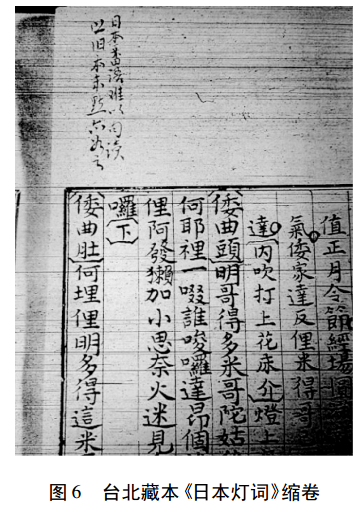 日本番误难以句读
以旧本未點六
值正月令節經場
氣倭家達反俚米得哥
達〇〔内吹打上花赤介燈上
〔倭曲頭〕明哥得多米哥陀姑
何耶裡一啜誰唆囉達昂個
俚阿發獺加小思奈火迷見
囉〔下〕
〔倭曲肚〕何埋俚明多得這米
图6 台北藏本《日本灯词》缩卷